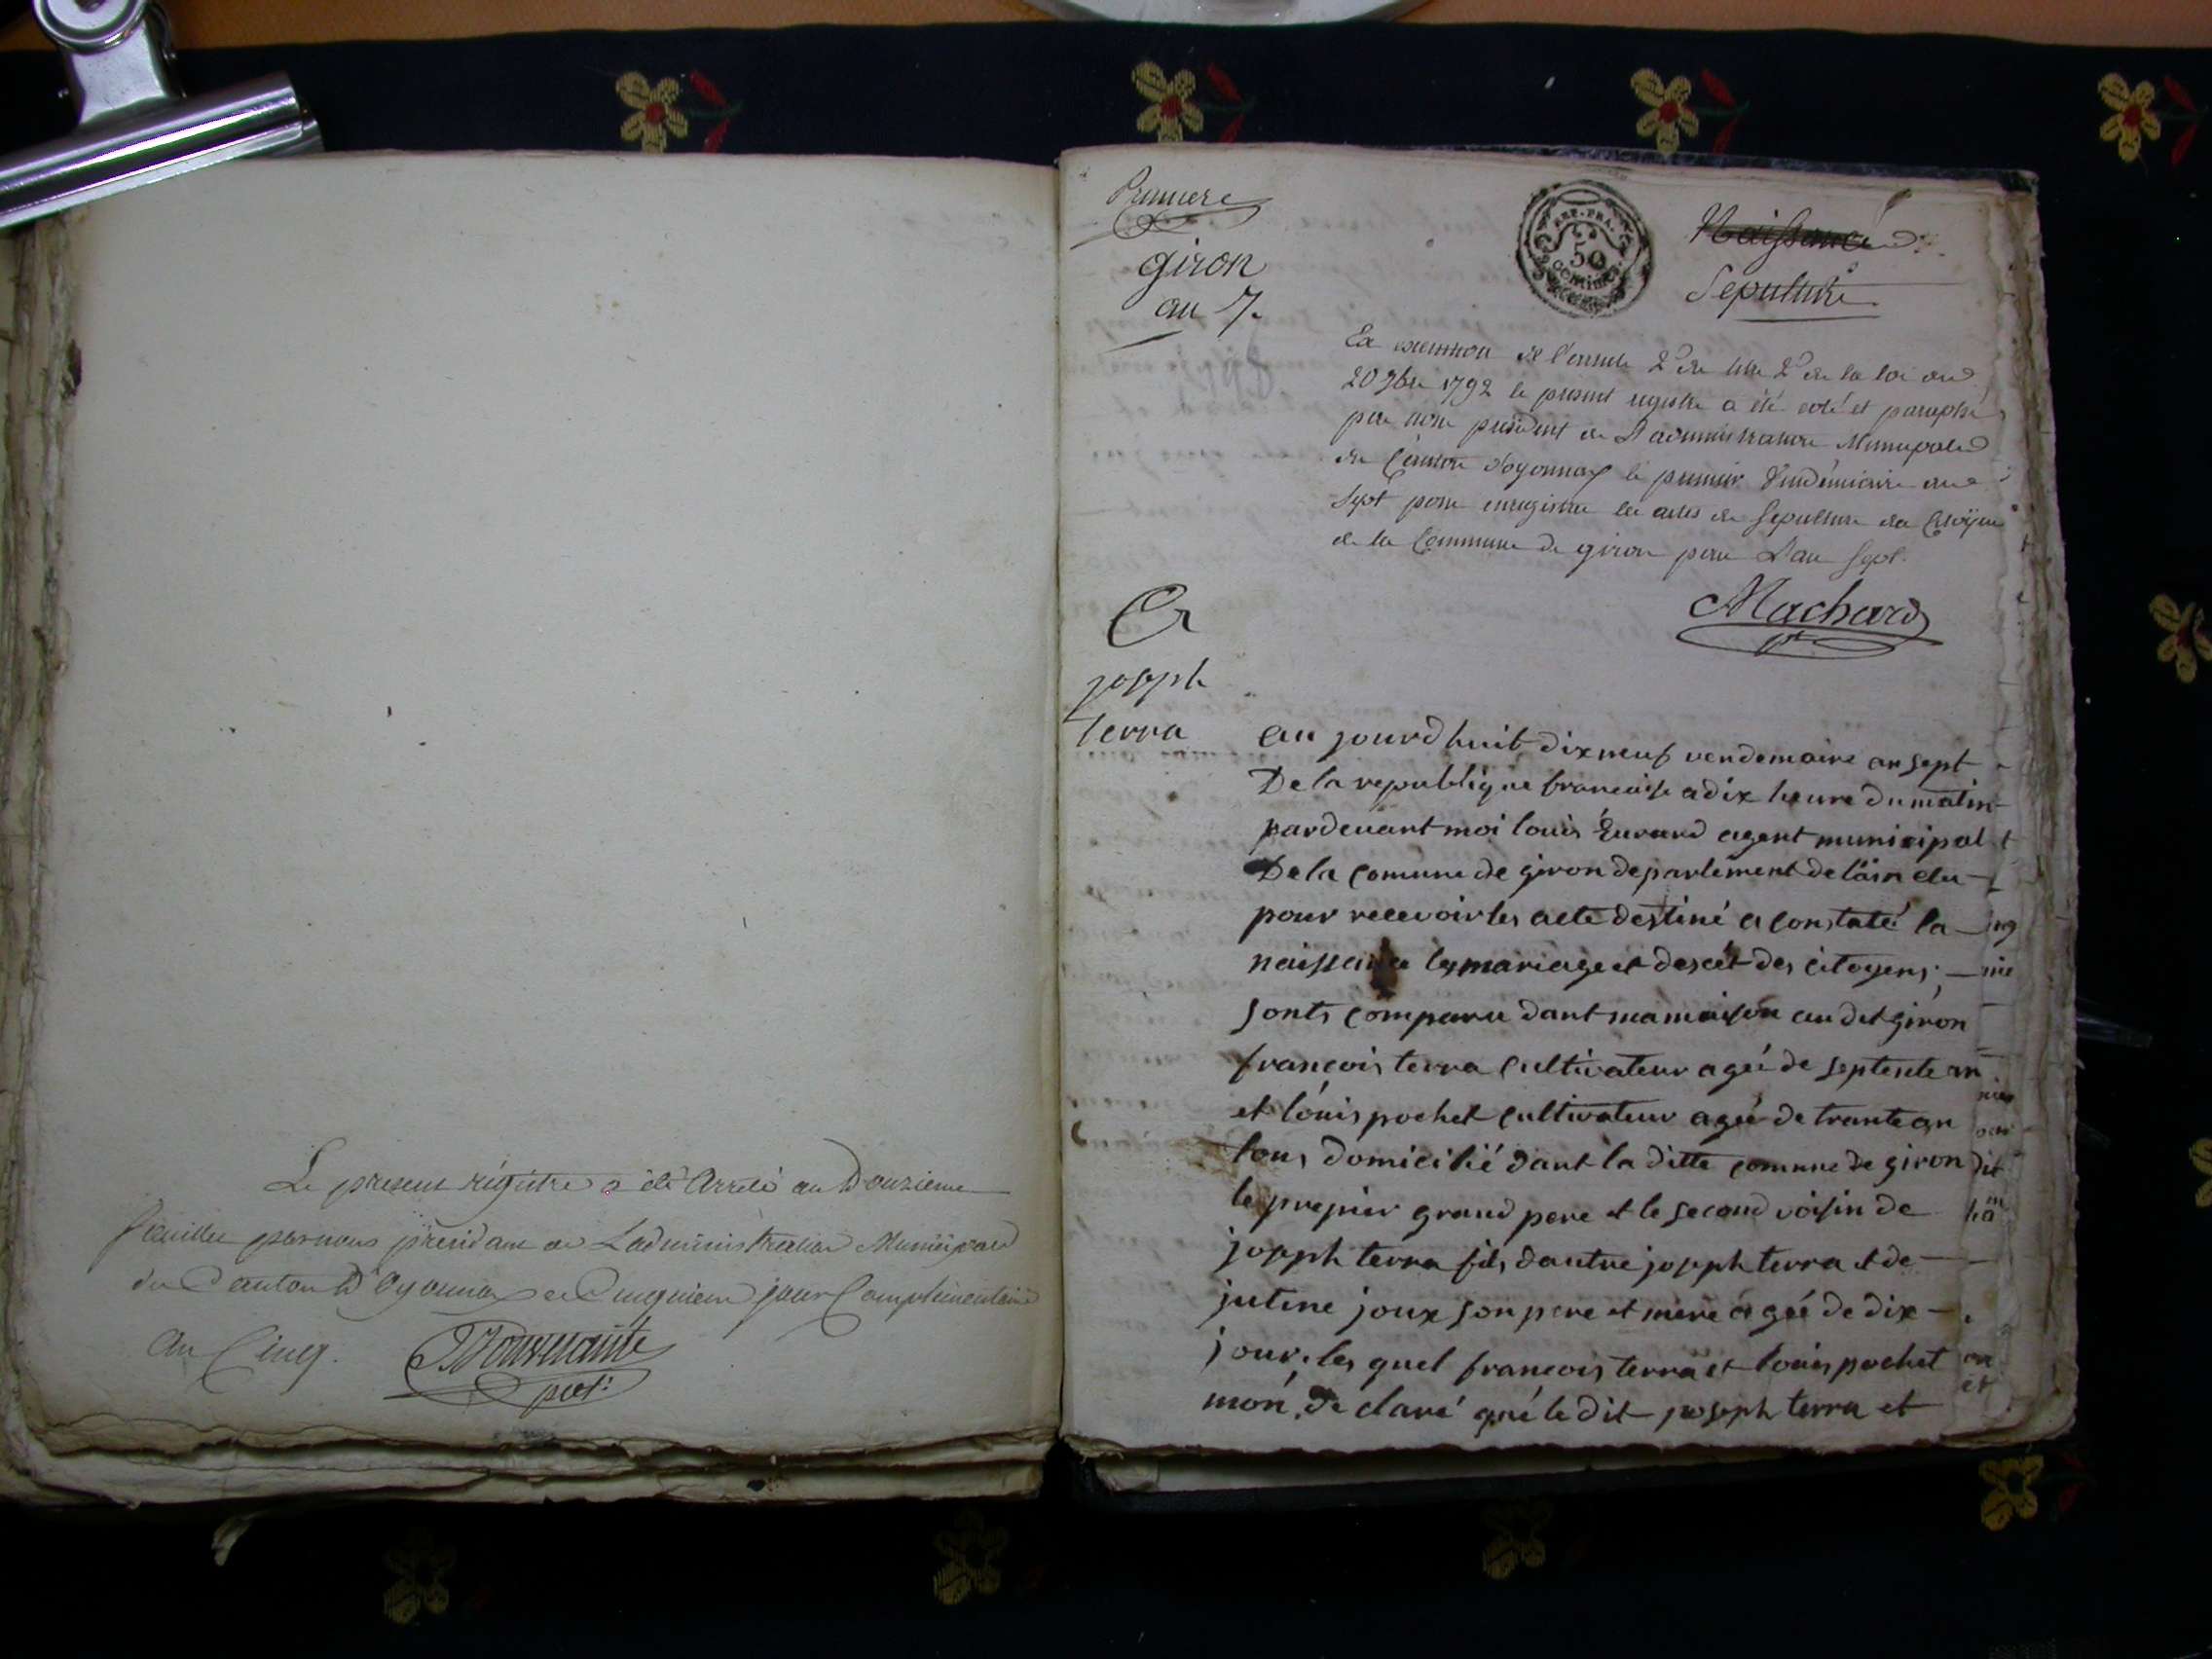 Le present régistre a été Arrété au Douzieme
feuillet par nous président de L'administration Municipale
du Canton D'Oyonnax le Cinquieme jour Complémentaire
An Cinq.
pdt:
Premiere
giron
an 7.
REP. FRA.
50
CENTIMES
Naissance
Sepulture
En execution de l'article 2e du titre 2e de la loi du
20 7bre 1792 le present registre a été coté et paraphé
par nous président de L'administration Municipale
du Canton d'oyonnax le premier Vendémiaire an
Sept pour enregistrer les actes de Sepulture des Citoÿens
de la Commune de giron pour L'an Sept.
Machard
pt
joseph
terra
au jourdhuit dix neuf vendemaire an sept
De la republique francaise a dix heure du matin
pardevant moi louis Evrard agent municipal
De la comune de giron departement de lain elu
pour recevoir les acte destiné a constaté la
naissance les mariage et descét des citoyens;
sonts comparu dant ma maison au dit giron
francois terra cultivateur agée de septente an
et louis pochet cultivateur agée de trante an
tous domicilié dant la ditte comune de giron
le premier grand pere et le second voisin de
joseph terra fils dautre joseph terra et de
jutine joux son pere et mere agée de dix
jour. les quel francois terra et louis pochet
mon declaré qué le dit joseph terra et